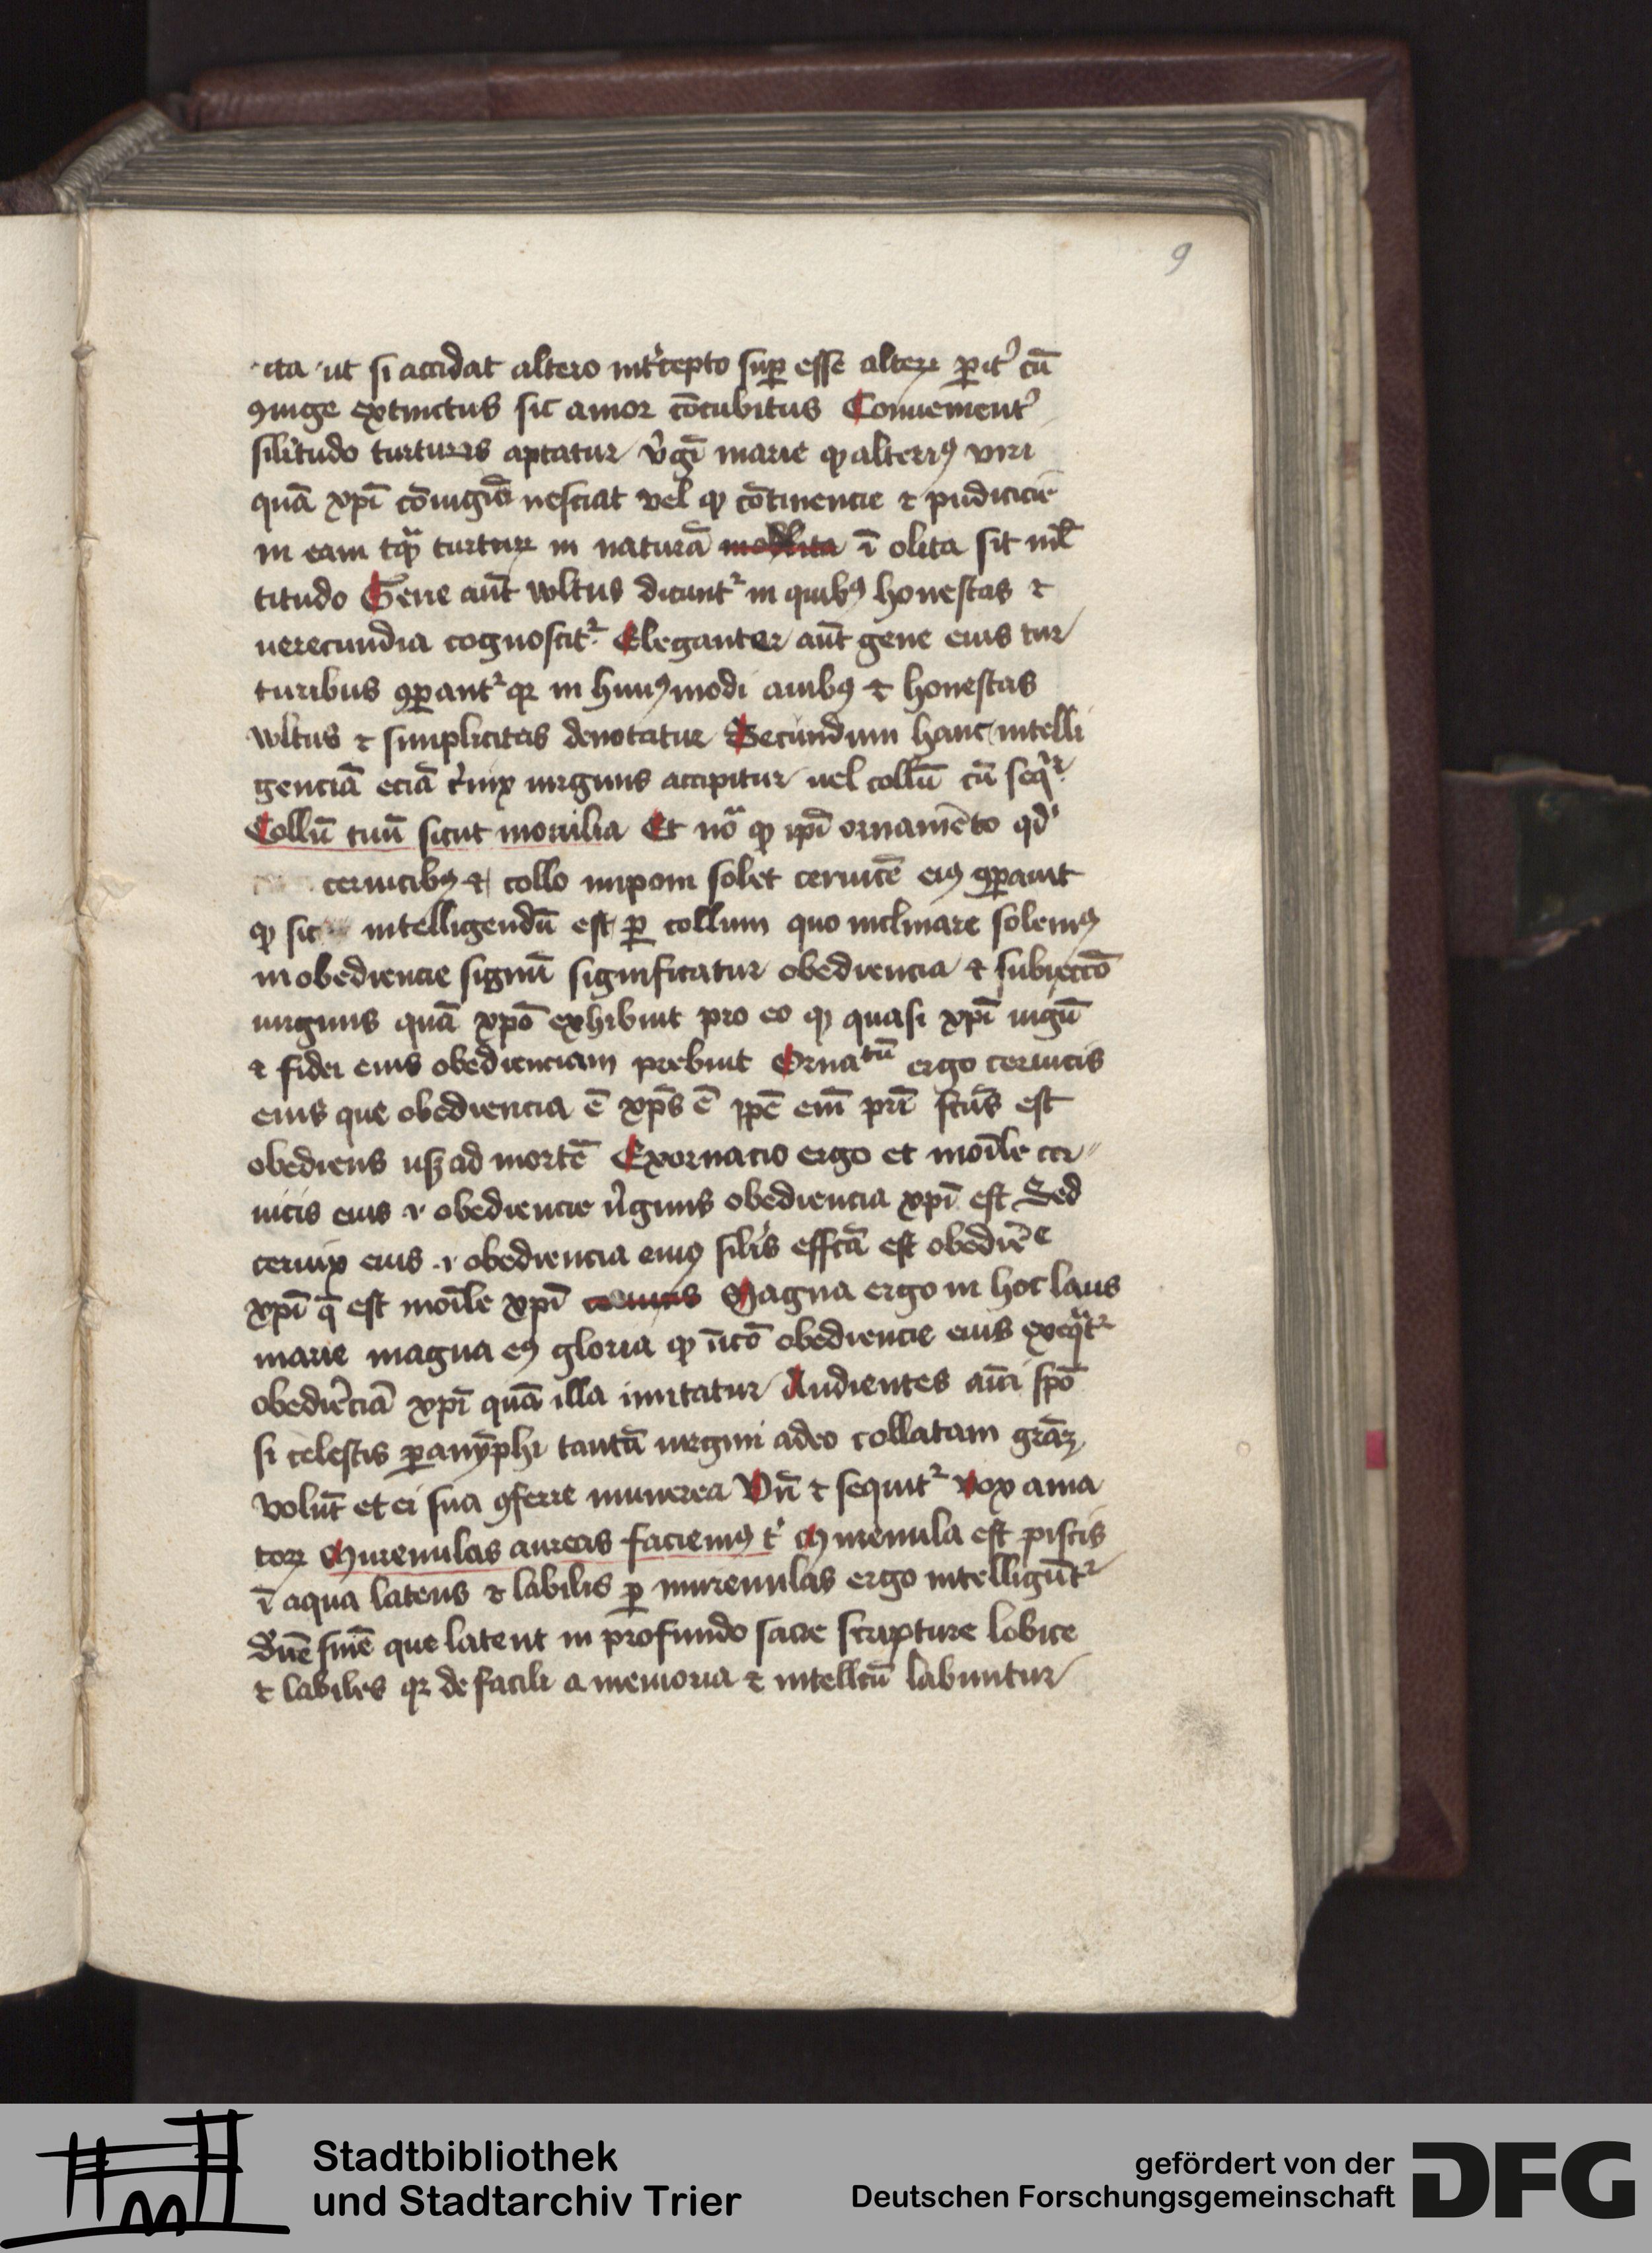 9
ita ut si accidat altero int'cepto sup esse alteri pit' cū
ꝯiuge extinctus sic amor cōcubitus Conuenient'
silitudo turturis aptatur v'gī marie ꝙ alteriꝰ viri
quā xpī cōiugiū nesciat vel ꝙ cōtinencie ⁊ pudicicie
in eam tꝙ turture in naturā i olita sit mł
titudo Gene aūt wltus dicunt᷑ in quibꝰ honestas ⁊
uerecundia cognoscit᷑ Eleganter aūt gene eius tur
turibus ꝯꝑant᷑ qꝛ in huiꝰmodi auibꝰ ⁊ honestas
wltus ⁊ simplicitas denotatur Secundum hanc intelli
genciā eciā c'uix uirginis accipitur uel collū cū seq'r
Collū tuū sicut monilia Et nō ꝙ ipī ornamēto qd'
ceruicibꝰ ⁊ collo imponi solet ceruicē eiꝰ ꝯꝑauit
ꝙ sic intelligendū est ꝑ collum quo inclinare solemꝰ
in obediencie signū significatur obediencia ⁊ subieccō
uirginis quā xpō exhibuit pro eo ꝙ quasi xpī iugū
⁊ fidei eius obedienciam prebuit Ornatū ergo ceruicis
eius que obediencia ē xp̄s ē ip̄e em̄ prī fcūs est
obediens usqꝫ ad mortē Exornacio ergo et moīle cer
uicis eius .i. obediencie v'ginis obediencia xpī est Sed
ceruix eius .i. obediencia eiuꝰ sil'is effcā est obediēe
xpī q̄ est moīle xpī Magna ergo in hoc laus
marie magna eꝰ gloria ꝙ īitō obediencie eius exeqꝛt᷑
obediēciā xpī quā illa imitatur Audientes aūi spō
si celestis ꝑanȳphi tantā uirgini adeo collatam grāꝫ
volūt et ei sua ꝯferre munerea Vn̄ ⁊ sequit᷑ Vox ama
torꝝ Murenulas aureas faciemꝰ t' Murenula est piscis
ī aqua latens ⁊ labilis ꝑ murenulas ergo intelligūt᷑
d'ne sn̄ie que latent in profundo sacre scripture lobice
⁊ labiles qꝛ de facili a memoria ⁊ intellcū labuntur
Stadtbibliothek
und Stadtarchiv Trier
gefördert von der
Deutschen Forschungsgemeinschaft
DFG